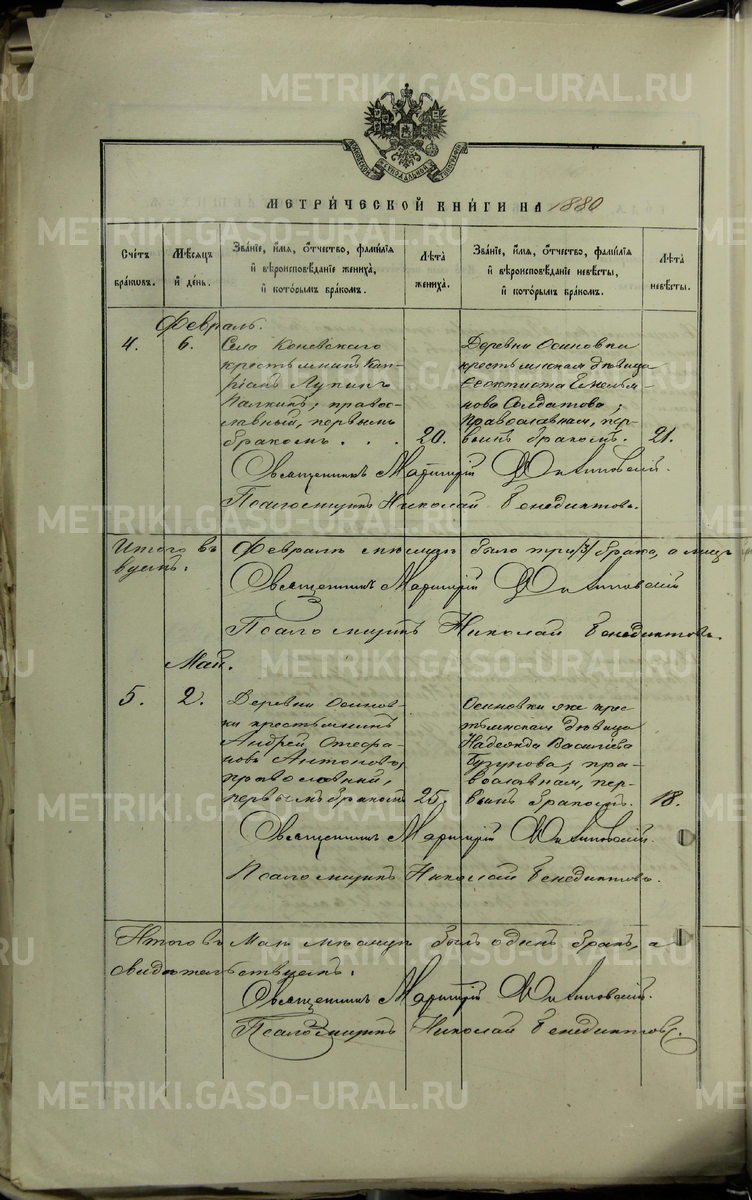 METRIKI.GASO-URAL.RU
МЕТРИ́ЧЕСКОЙ КНИ́ГИ НА 1880
Сче́тъ бра́ковъ.
Мѣ́сяцъ и҆ де́нь.
Зва́нїе, и҆́мя, ѻ҆́тчество, фами́лїя и҆ вѣроисповѣ́данїе жениха̀, и҆ кото́рымъ бра́комъ.
Лѣ́та жениха̀.
Зва́нїе, и҆́мя, ѻ҆́тчество, фами́лїя и҆ вѣроисповѣ́данїе невѣ́сты, и҆ кото́рымъ бра́комъ.
Лѣ́та невѣ́сты.
Февраль.
4.
6.
Села Коневскаго
крестьянинъ Кип-
ріанъ Лупинъ
Палкинъ; право-
славный, первымъ
бракомъ . . .
20.
Деревни Осиновки
крестьянская дѣвица
Ѳеоктиста Емелья-
нова Солдатова;
православная, пер-
вымъ бракомъ.
21.
Священникъ
Псаломщикъ Николай Бенедиктовъ.
Итого въ Февралѣ мѣсяцѣ было три /3/ брака, а
Священникъ
Псаломщикъ Николай Бенедиктовъ.
Май.
5.
2.
Деревни Осинов-
ки крестьянинъ
Андрей Стефа-
новъ Антоновъ;
православный,
первымъ бракомъ
25.
Осиновки же крес-
тьянская дѣвица
Надежда Василіева
Бузунова; пра-
вославная, пер-
вымъ бракомъ.
18.
Священникъ
Псаломщикъ Николай Бенедиктовъ.
Итого въ Маѣ мѣсяцѣ былъ одинъ бракъ, а
свидѣтельствуемъ.
Священникъ
Псаломщикъ Николай Бенедиктовъ.
METRIKI.GASO-URAL.RU